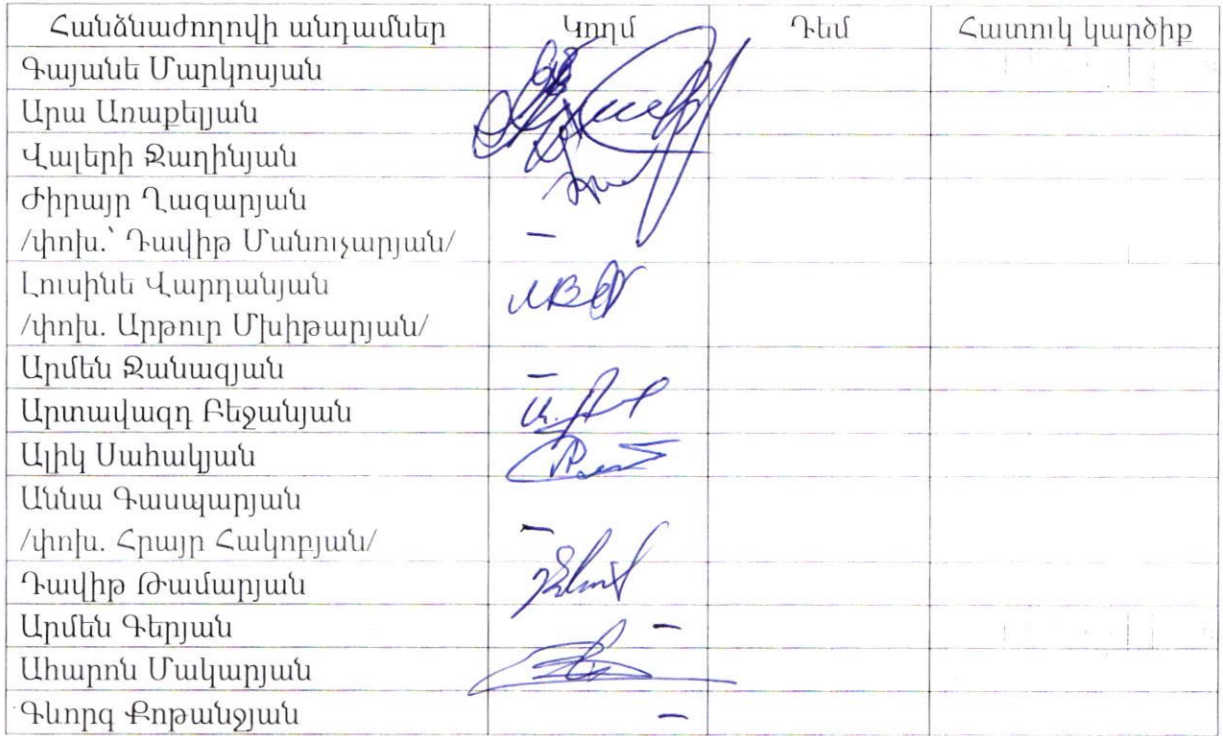 Հանձնաժողովի անդամներ Կողմ Դեմ Հատուկ կարծիք
Գայանե Մարկոսյան
Արա Առաքելյան
Վալերի Ջաղինյան
Ժիրայր Ղազարյան
/փոխ.՝ Դավիթ Մանուչարյան/ –
Լուսինե Վարդանյան
/փոխ. Արթուր Մխիթարյան/
Արմեն Ջանազյան –
Արտավազդ Բեջանյան
Ալիկ Սահակյան
Աննա Գասպարյան
/փոխ. Հրայր Հակոբյան/ –
Դավիթ Թամարյան
Արմեն Գերյան –
Ահարոն Մակարյան
Գևորգ Քոթանջյան –